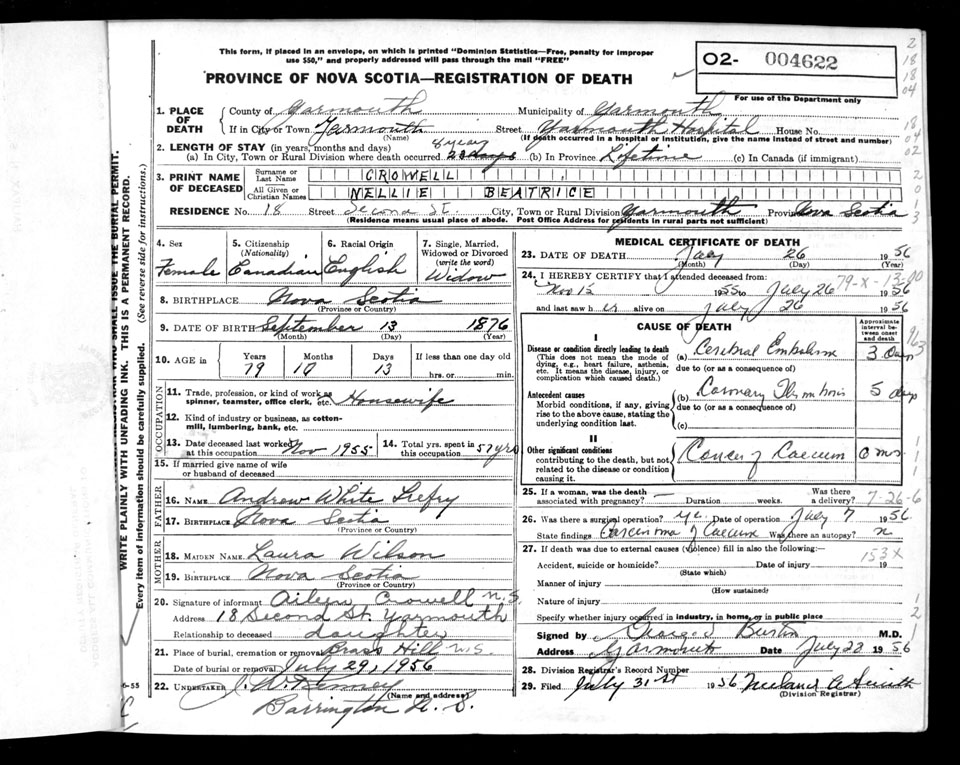 This form, if placed in an envelope, on which is printed "Dominion Statistics—Free, penalty for improper
use $50," and properly addressed will pass through the mail "FREE"
PROVINCE OF NOVA SCOTIA—REGISTRATION OF DEATH
02- 004622
For use of the Department only
2
18
18
04
18
04
02
2
0
1
3
WRITE PLAINLY WITH UNFADING INK. THIS IS A PERMANENT RECORD.
SHALL ISSUE THE BURIAL PERMIT.
Every item of information should be carefully supplied. (See reverse side for instructions.)
1. PLACE OF DEATH
County of Yarmouth Municipality of Yarmouth
If in City or Town Yarmouth Street Yarmouth Hospital House No.
(Name) (If death occurred in a hospital or institution, give the name instead of street and number)
2. LENGTH OF STAY (in years, months and days) 8 years
(a) In City, Town or Rural Division where death occurred 23 days (b) In Province Lifetime (c) In Canada (if immigrant)
3. PRINT NAME OF DECEASED
Surname or Last Name CROWELL
All Given or Christian Names NELLIE BEATRICE
RESIDENCE No. 18 Street Second St. City, Town or Rural Division Yarmouth Province Nova Scotia
(Residence means usual place of abode. Post Office Address for residents in rural parts not sufficient)
4. Sex
Female
5. Citizenship
(Nationality)
Canadian
6. Racial Origin
English
7. Single, Married,
Widowed or Divorced
(write the word)
Widow
8. BIRTHPLACE Nova Scotia
(Province or Country)
9. DATE OF BIRTH September 13 1876
(Month) (Day) (Year)
10. AGE in
Years Months Days If less than one day old
79 10 13 hrs. or min.
OCCUPATION
11. Trade, profession, or kind of work as
spinner, teamster, office clerk, etc. Housewife
12. Kind of industry or business, as cotton-
mill, lumbering, bank, etc.
13. Date deceased last worked
at this occupation Nov 1955
14. Total yrs. spent in
this occupation 57 yrs
15. If married give name of wife
or husband of deceased
FATHER
16. NAME Andrew White Trefry
17. BIRTHPLACE Nova Scotia
(Province or Country)
MOTHER
18. MAIDEN NAME Laura Wilson
19. BIRTHPLACE Nova Scotia
(Province or Country)
20. Signature of informant Aileen Crowell N.S.
Address 18 Second St. Yarmouth
Relationship to deceased daughter
21. Place of burial, cremation or removal Brass Hill N.S.
Date of burial or removal July 29, 1956
22. UNDERTAKER J. W. Kenney
(Name and address)
Barrington N. S.
6-55
MEDICAL CERTIFICATE OF DEATH
23. DATE OF DEATH July 26 1956
(Month) (Day) (Year)
24. I HEREBY CERTIFY that I attended deceased from:
79-X-13-00
Nov 15 1955 to July 26 1956
and last saw her alive on July 26 1956
CAUSE OF DEATH
Approximate
interval be-
tween onset
and death
I
Disease or condition directly leading to death
(This does not mean the mode of
dying, e.g., heart failure, asthenia,
etc. It means the disease, injury, or
complication which caused death.)
(a) Cerebral Embolism 3 days
due to (or as a consequence of)
Antecedent causes
Morbid conditions, if any, giving
rise to the above cause, stating the
underlying condition last.
(b) Coronary Thrombosis 5 days
due to (or as a consequence of)
(c)
II
Other significant conditions
contributing to the death, but not
related to the disease or condition
causing it.
Cancer of Caecum mos
1
1
25. If a woman, was the death
associated with pregnancy? Duration weeks. Was there
a delivery?
7-26-6
26. Was there a surgical operation? yes Date of operation July 7 1956
State findings Carcinoma of Caecum Was there an autopsy? n
27. If death was due to external causes (violence) fill in also the following:—
153X
Accident, suicide or homicide? Date of injury 19
(State which)
Manner of injury
(How sustained)
Nature of injury
Specify whether injury occurred in industry, in home, or in public place
1
2
1
Signed by Burton M.D.
Address Yarmouth Date July 28 1956
28. Division Registrar's Record Number
29. Filed July 31st 1956 A Smith
(Division Registrar)